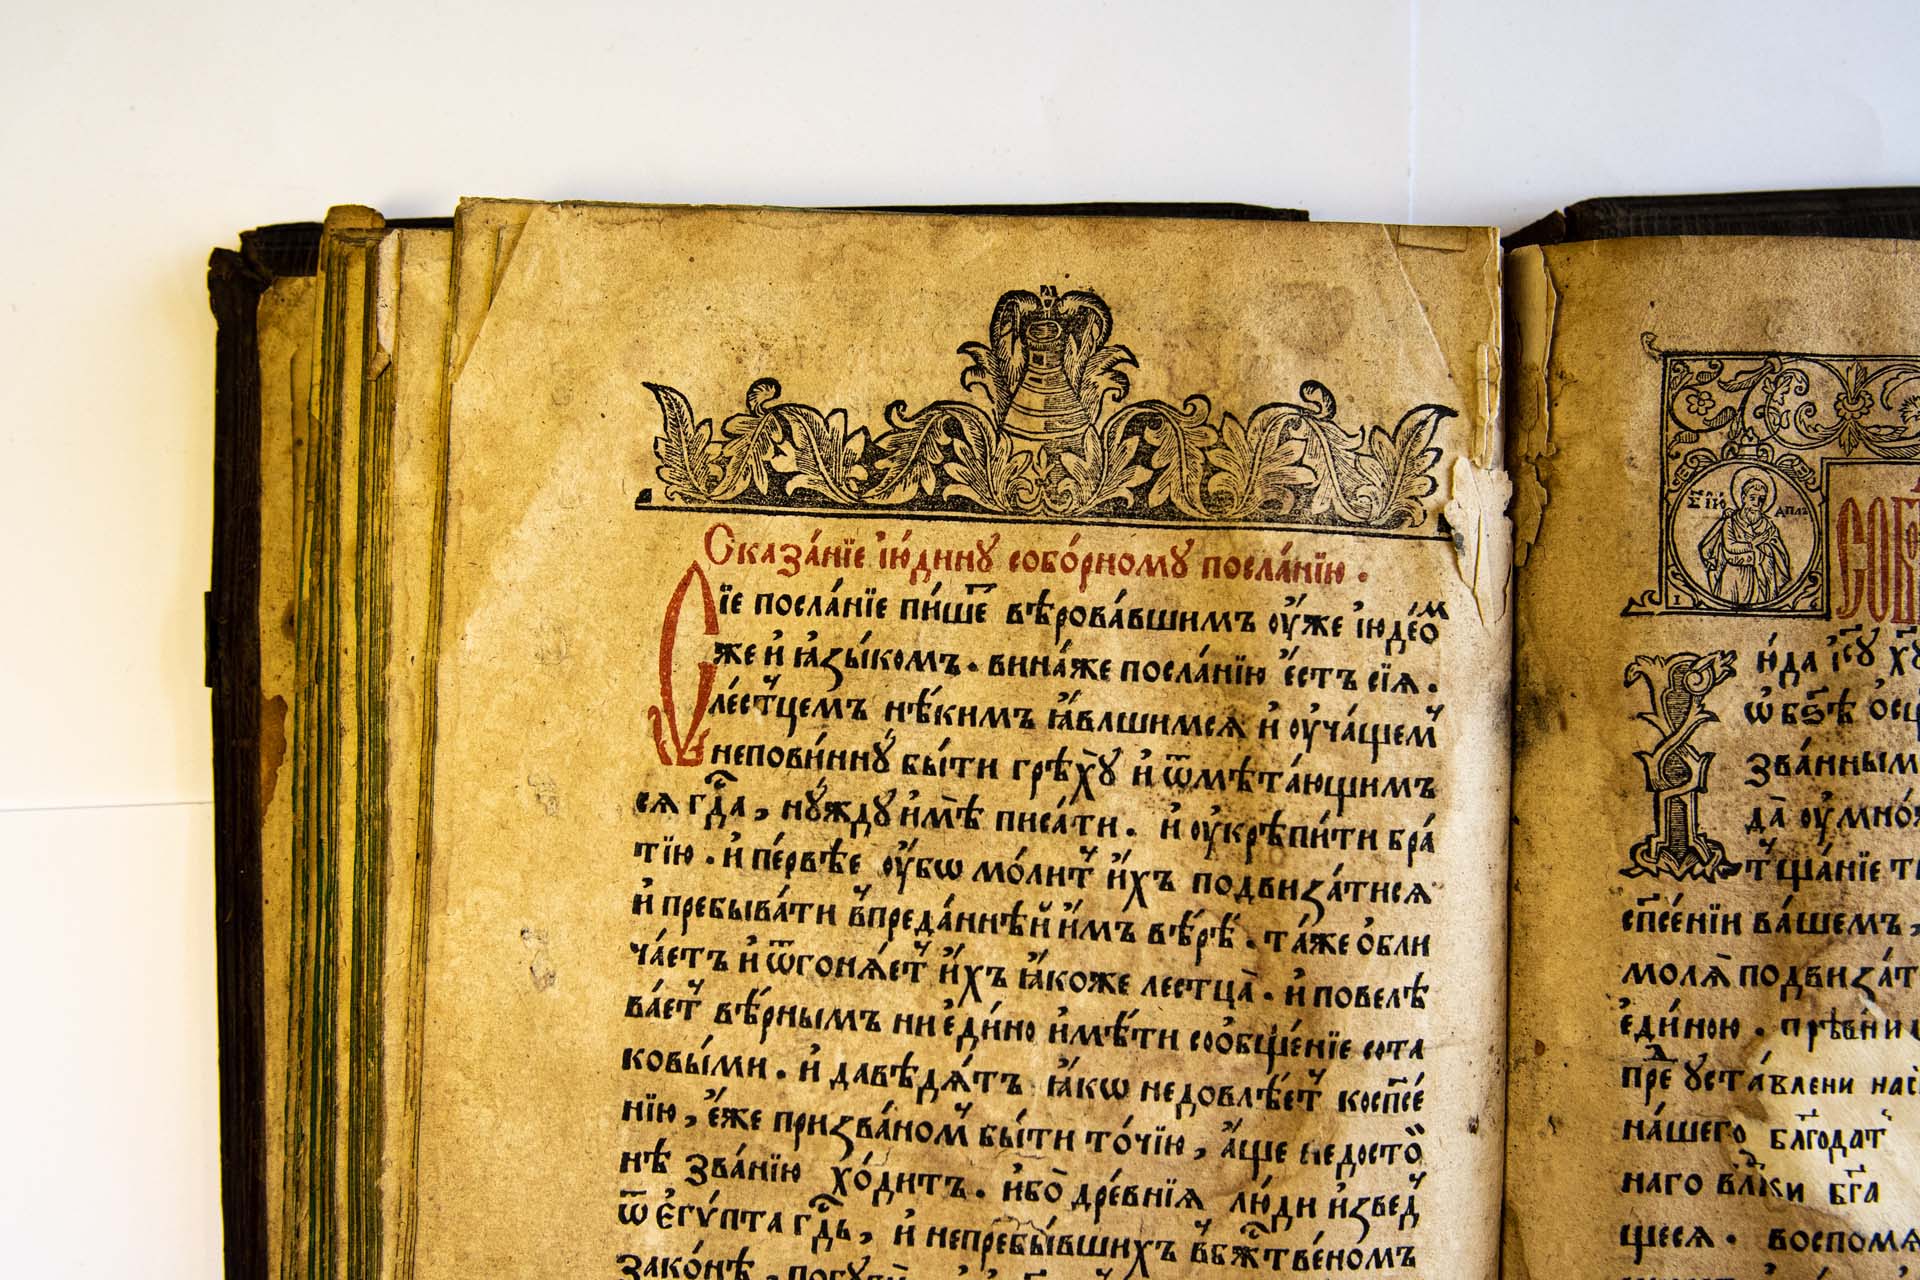 Сказа́нїе і҆ю́дину собо́рному посла́нїю .
Сїе посла́нїе пи́шеⷮ вѣрова́вшимъ оу҆́же і҆юде́ѡⷨ
же и҆ ꙗ҆зы́комъ . вина́же посла́нїю є҆́сть сїѧ .
ле́стцемъ нѣ́кимъ ꙗ҆́влшимсѧ и҆ оу҆ча́щем̾
непови́нну бы́ти грѣх̀у и҆ ѿмѣта́ющимъ
сѧ гⷭ҇да , ну́жду и҆мѣ̀ писа́ти . и҆ оу҆крѣпи́ти бра́
тїю . и҆ пе́рвѣе оу҆́бѡ мо́лит̾ и҆́хъ подвиза́тисѧ
и҆ пребыва́ти в̾преда́ннѣй и҆́мъ вѣ́рѣ . та́же ѻ҆бли
ча́етъ и҆ ѿгонѧ́ет̾ и҆́хъ ꙗ҆́коже лестца̀ . и҆ повелѣ
ва́ет̾ вѣ́рнымъ ни є҆ди́но и҆мѣ́ти соѻбще́нїе сота
ковы́ми . и҆ да вѣ́дѧтъ ꙗ҆́кѡ недовлѣ́ет̾ коспⷭ҇е́
нїю , є҆́же при́званом̾ бы́ти то́чїю , а҆́ще недосто́й
нѣ зва́нїю хо́дитъ . и҆́бо дре́внїѧ лю́ди и҆зве́д̾
ѿ є҆гѵ́пта гⷭ҇дь , и҆ непребы́вшихъ в̾бжⷭ҇тве́номъ
зако́нѣ , погуб̾
СОБ
ю́да і҆су хⷭ҇у
ѡ҆ бз҃ѣ ѻ҆сщ
зва́нным
да̀ оу҆мно́ж
тща́нїе т
спⷭ҇е́нїи ва́шемъ ,
молѧ̀ подвиза́т
є҆ди́ною . прѣ́вни
преⷣуста́влени на
на́шего блⷣгодат̾
наго влⷣки бг҃а
щесѧ . воспомѧ